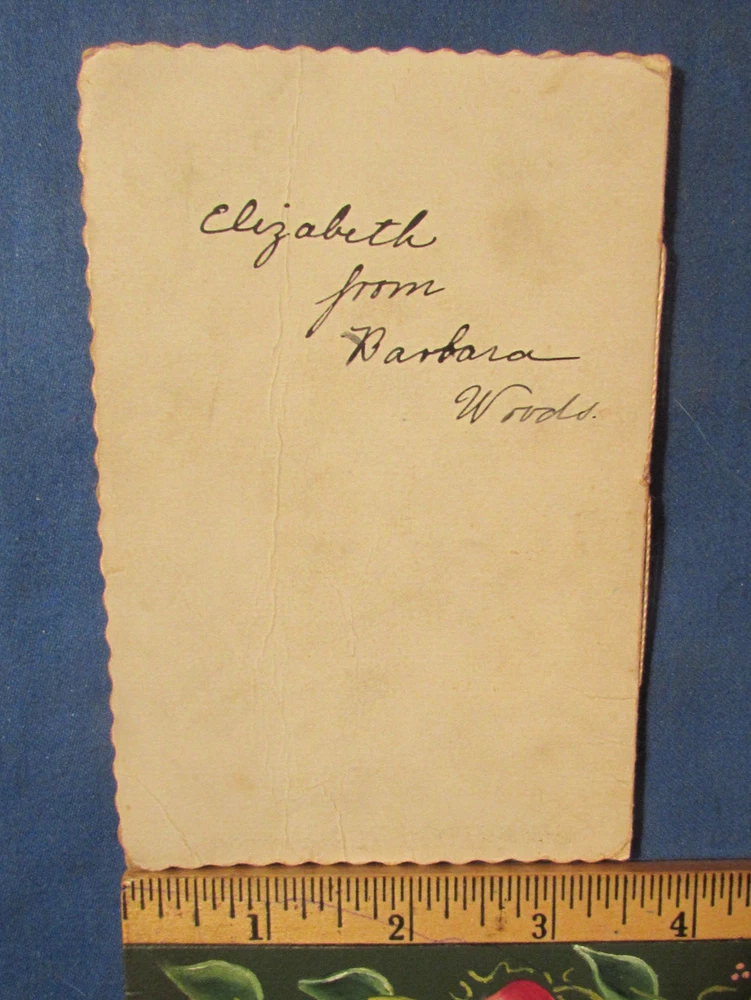 Elizabeth
from
Barbara
Woods.
1 2 3 4